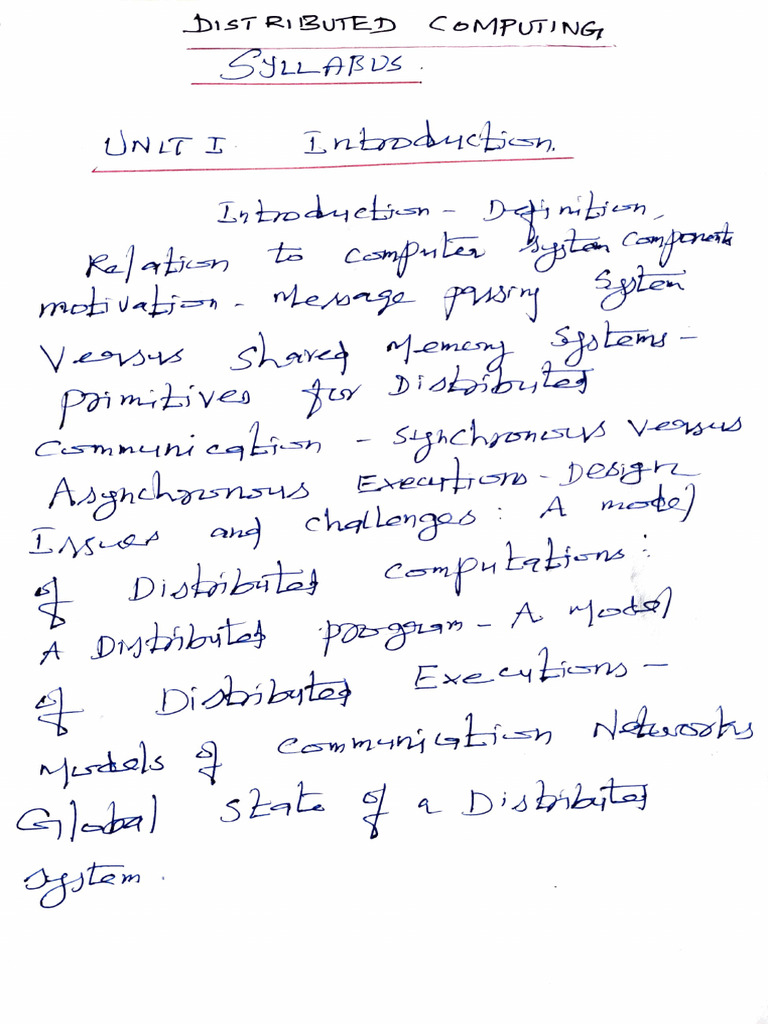 DISTRIBUTED COMPUTING
SYLLABUS.
UNIT I. Introduction.
Introduction - Definition,
Relation to computer system components
motivation - Message passing System
Versus Shared Memory Systems -
Primitives for Distributed
Communication - Synchronous versus
Asynchronous Executions - Design
Issues and challenges: A model
of Distributed computations:
A Distributed program - A Model
of Distributed Executions -
Models of Communication Networks
Global State of a Distributed
system.